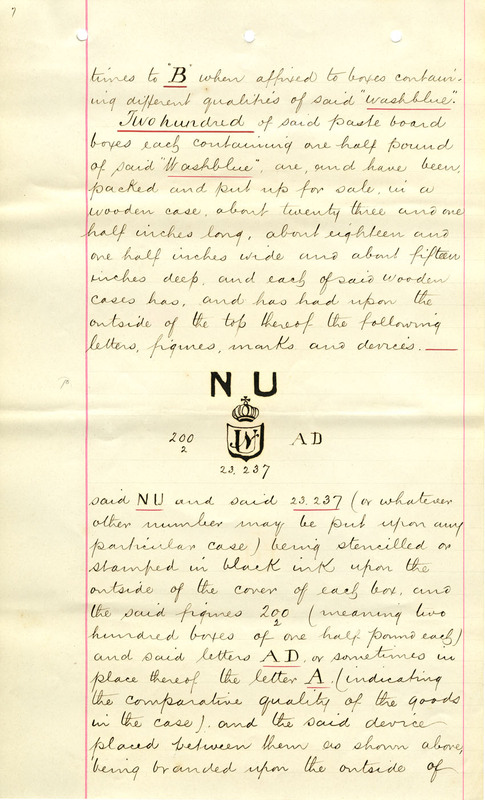 7
times to "B" when affixed to boxes contain-
ing different qualities of said "washblue".
Two hundred of said paste board
boxes each containing one half pound
of said "Washblue", are, and have been,
packed and put up for sale, in a
wooden case, about twenty three and one
half inches long, about eighteen and
one half inches wide and about fifteen
inches deep, and each of said wooden
cases has, and has had upon the
outside of the top thereof the following
letters, figures, marks and devices.
NU
200 AD
2
23.237
said NU and said 23.237 (or whatever
other number may be put upon any
particular case) being stencilled or
stamped in black ink upon the
outside of the cover of each box, and
the said figures 200 (meaning two
2
hundred boxes of one half pound each)
and said letters AD, or sometimes in
place thereof the letter A, (indicating
the comparative quality of the goods
in the case), and the said device
placed between them as shown above,
being branded upon the outside of